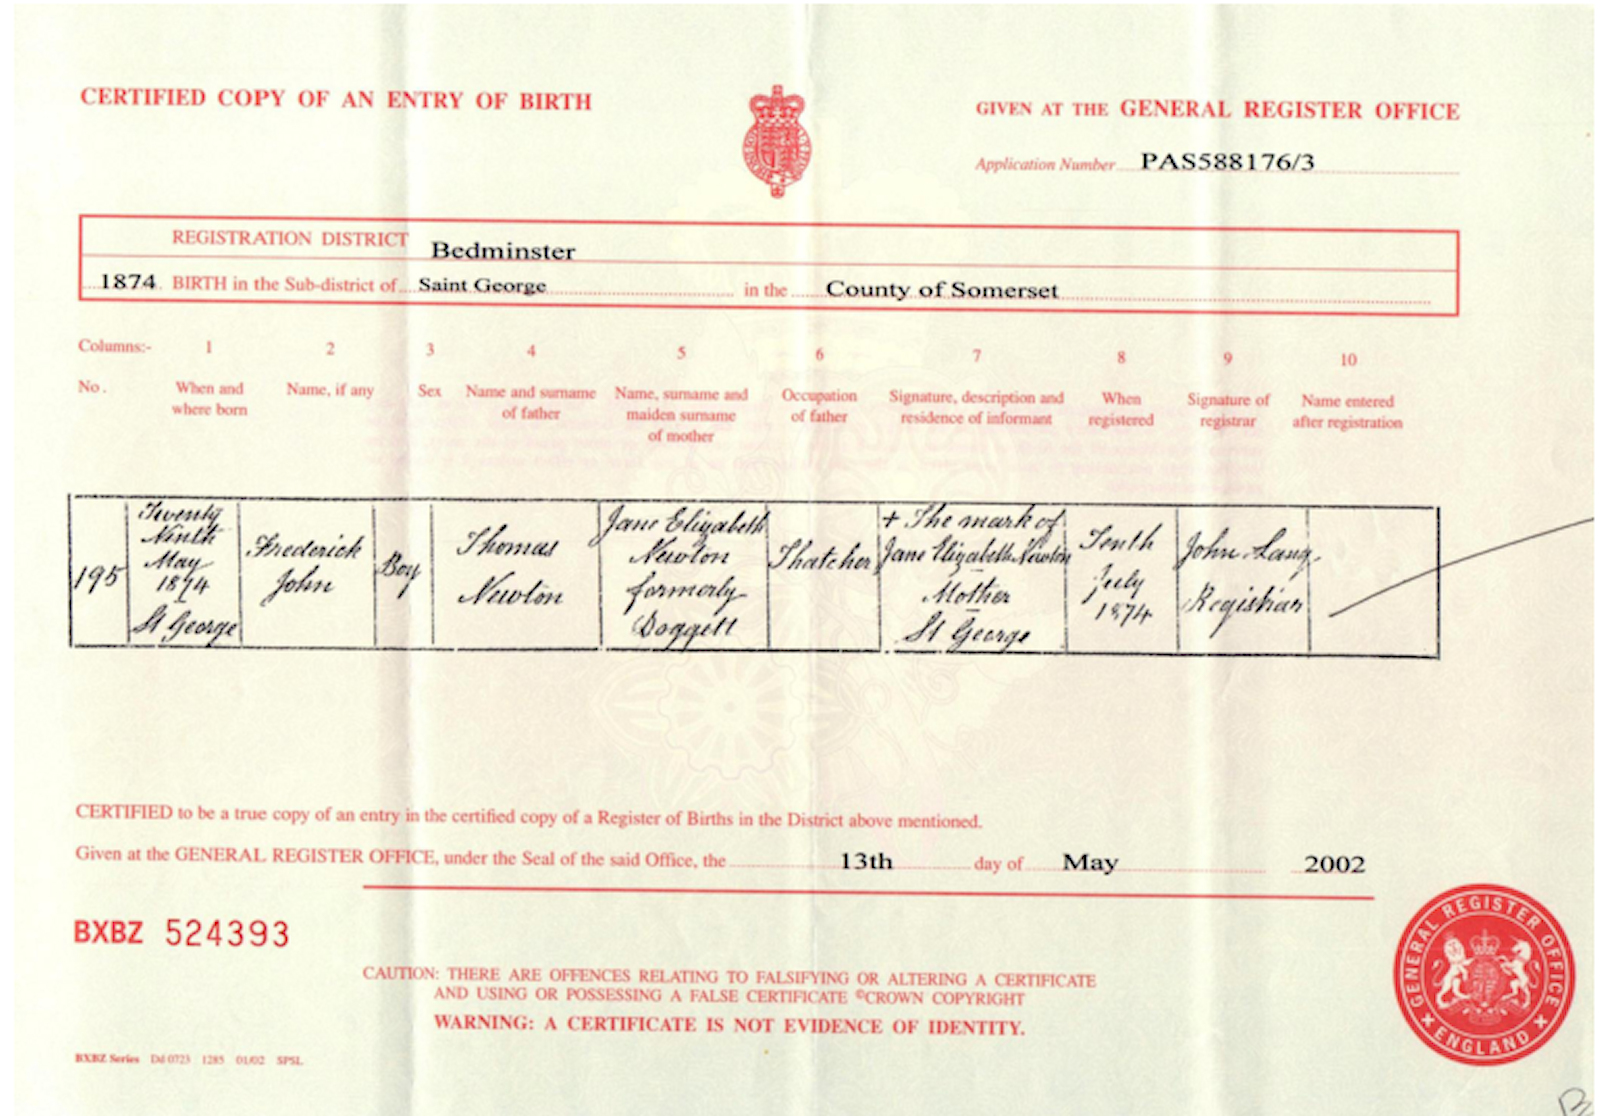 CERTIFIED COPY OF AN ENTRY OF BIRTH
GIVEN AT THE GENERAL REGISTER OFFICE
Application Number PAS588176/3
REGISTRATION DISTRICT Bedminster
1874 BIRTH in the Sub-district of Saint George in the County of Somerset
Columns:- 1 2 3 4 5 6 7 8 9 10
No.
When and
where born
Name, if any
Sex
Name and surname
of father
Name, surname and
maiden surname
of mother
Occupation
of father
Signature, description and
residence of informant
When
registered
Signature of
registrar
Name entered
after registration
195
Twenty
Ninth
May
1874
St George
Frederick
John
Boy
Thomas
Newton
Jane Elizabeth
Newton
formerly
Doggett
Thatcher
+ The mark of
Jane Elizabeth Newton
Mother
St George
Tenth
July
1874
John Lang
Registrar
CERTIFIED to be a true copy of an entry in the certified copy of a Register of Births in the District above mentioned.
Given at the GENERAL REGISTER OFFICE, under the Seal of the said Office, the 13th day of May 2002
BXBZ 524393
CAUTION: THERE ARE OFFENCES RELATING TO FALSIFYING OR ALTERING A CERTIFICATE
AND USING OR POSSESSING A FALSE CERTIFICATE ©CROWN COPYRIGHT
WARNING: A CERTIFICATE IS NOT EVIDENCE OF IDENTITY.
GENERAL REGISTER OFFICE
ENGLAND
BXBZ Series Dd 0723 1285 01/02 SPSL